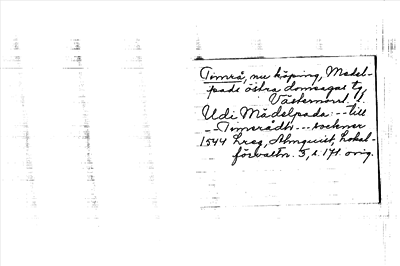 Timrå, nu köping, Medel-
pads östra domsagas tg
Västernorrl. l.
Udi Mädelpada --- till
-- Timerådh --- sockner
1544 Lreg, Almquist, Lokal-
förvaltn. 3, s. 171. orig.